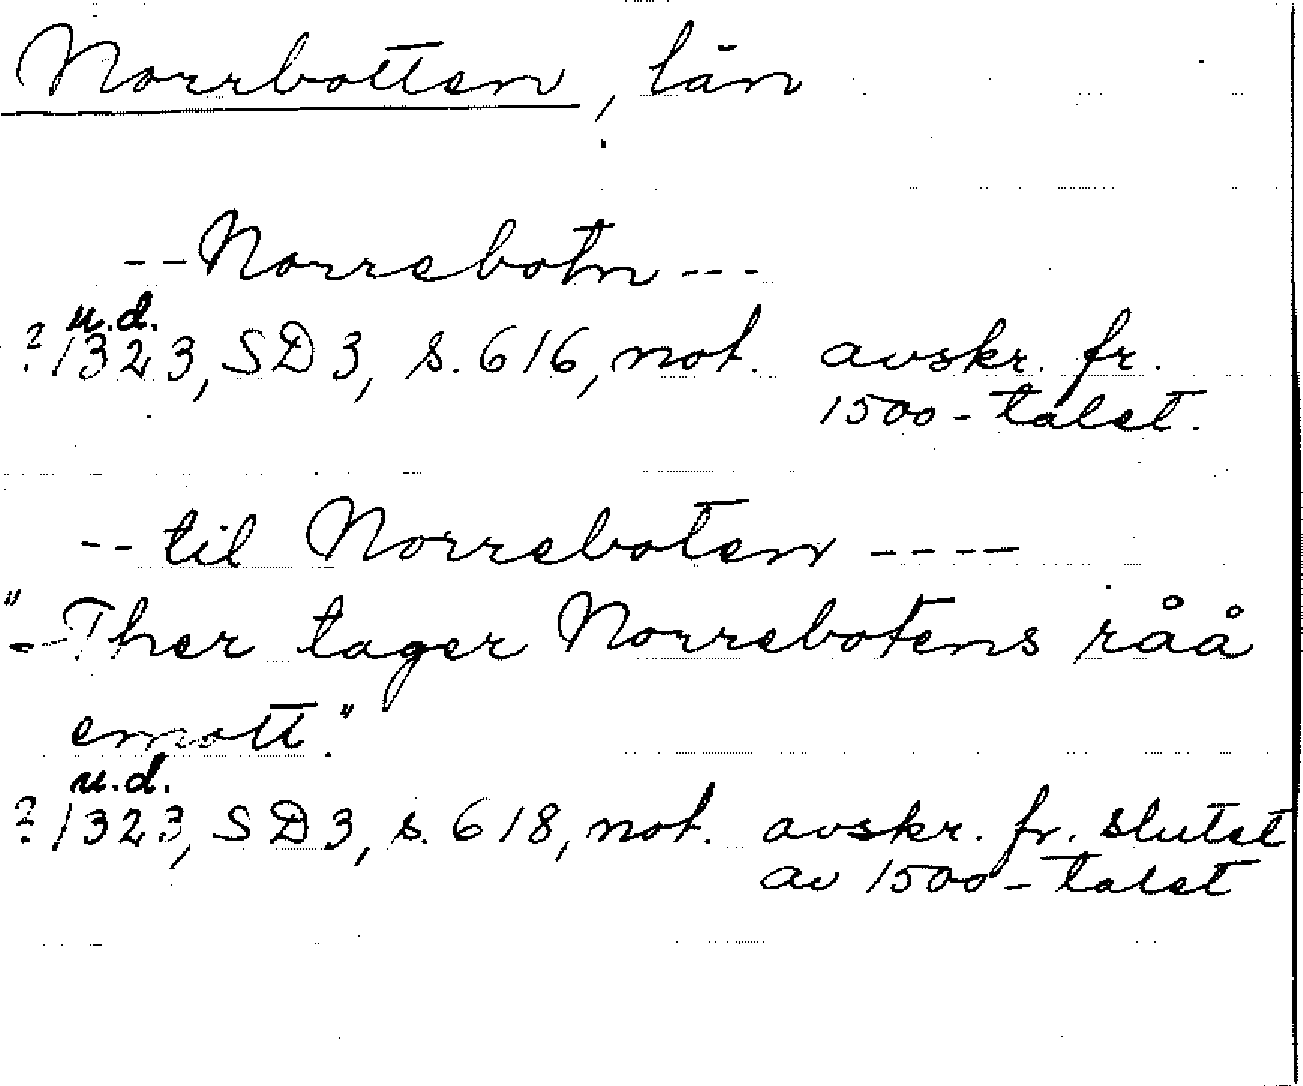 Norrbotten, län
--Norrebotn---
u.d.
?1323, SD3, s. 616, not. avskr. fr.
1500-talet.
--til Norreboten----
"--Ther tager Norrebotens råå
emott."
u.d.
?1323, SD3, s. 618, not. avskr. fr. slutet
av 1500-talet